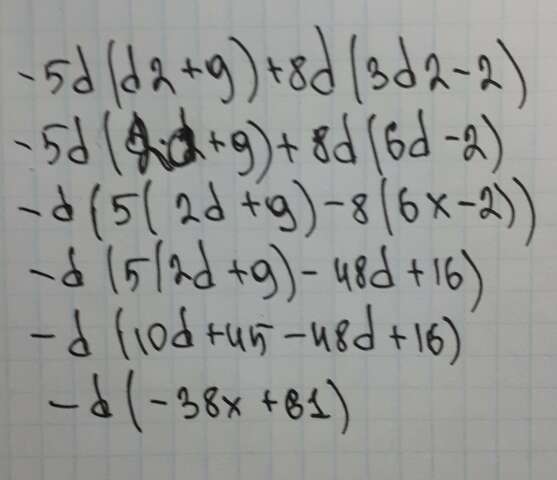 -5d(d2+9)+8d(3d2-2)
-5d(2d+9)+8d(6d-2)
-d(5(2d+9)-8(6x-2))
-d(5(2d+9)-48d+16)
-d(10d+45-48d+16)
-d(-38x+61)